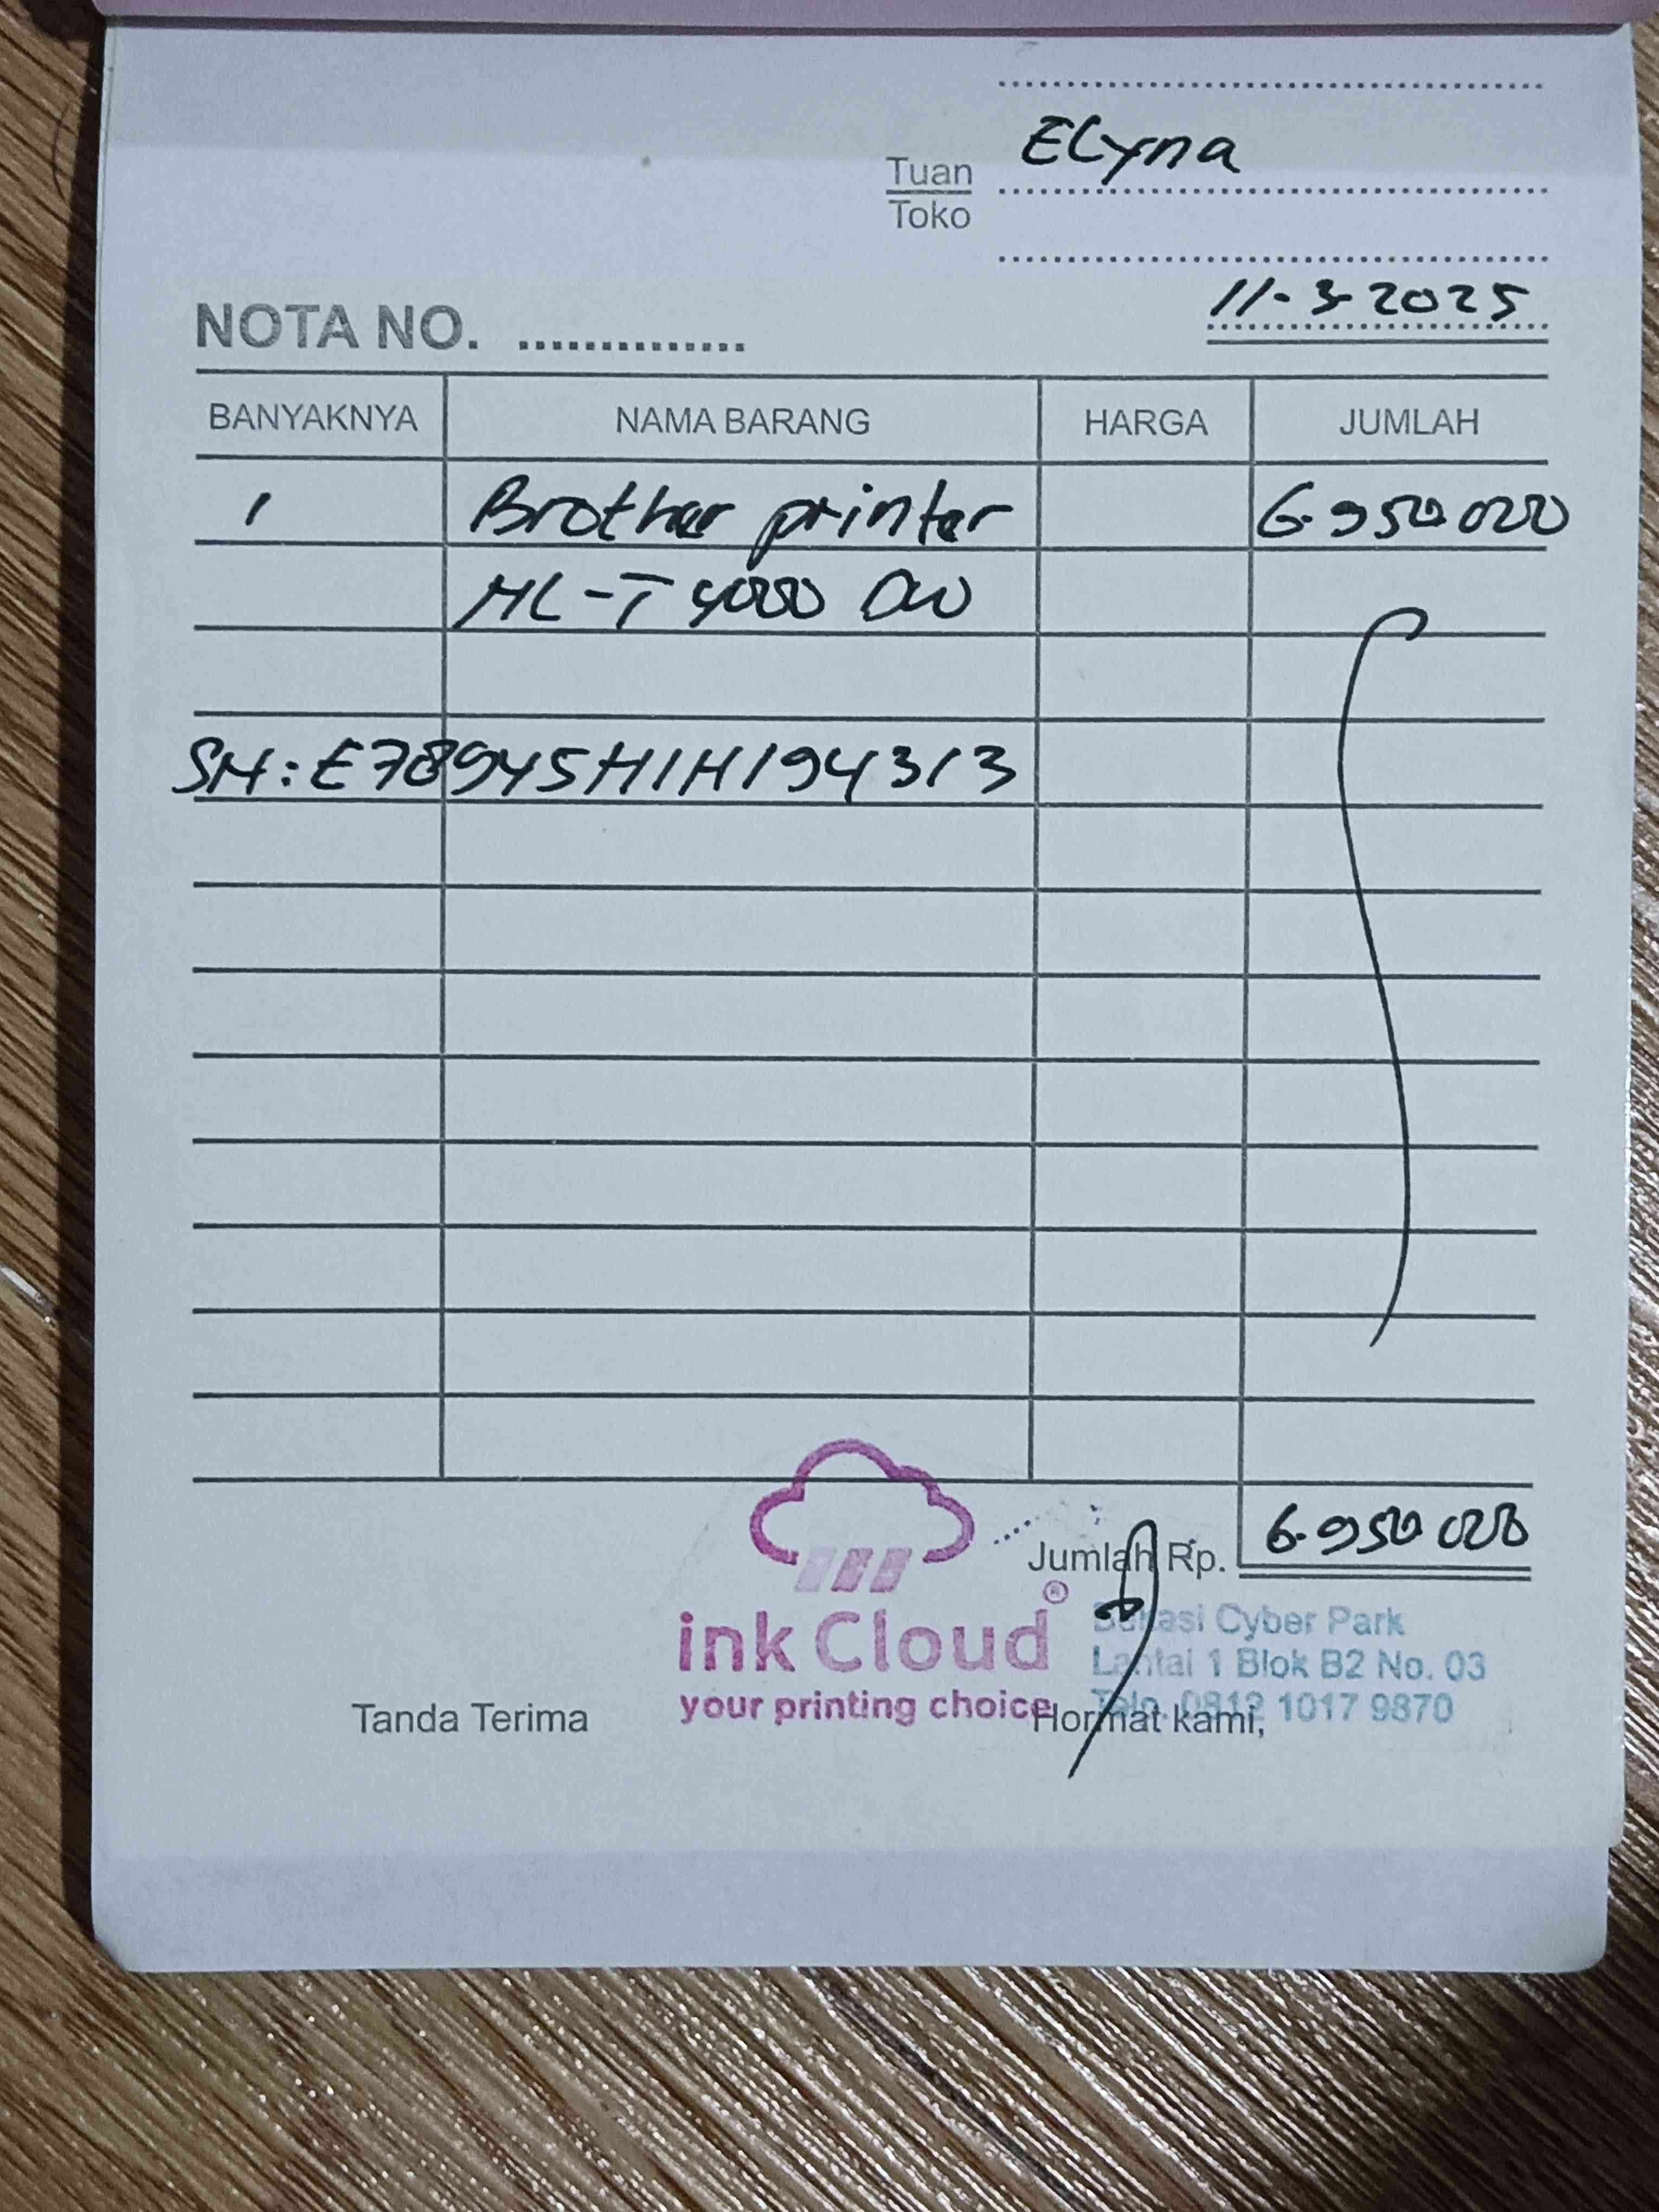 Elyna
Tuan
Toko
11-3-2025
NOTA NO. ...............
BANYAKNYA NAMA BARANG HARGA JUMLAH
1 Brother printer 6.950.000
HL-T4000 DW
SN: E78945H1H194313
Jumlah Rp. 6.950.000
ink Cloud®
your printing choice
Bekasi Cyber Park
Lantai 1 Blok B2 No. 03
Telp. 0812 1017 9870
Tanda Terima Hormat kami,